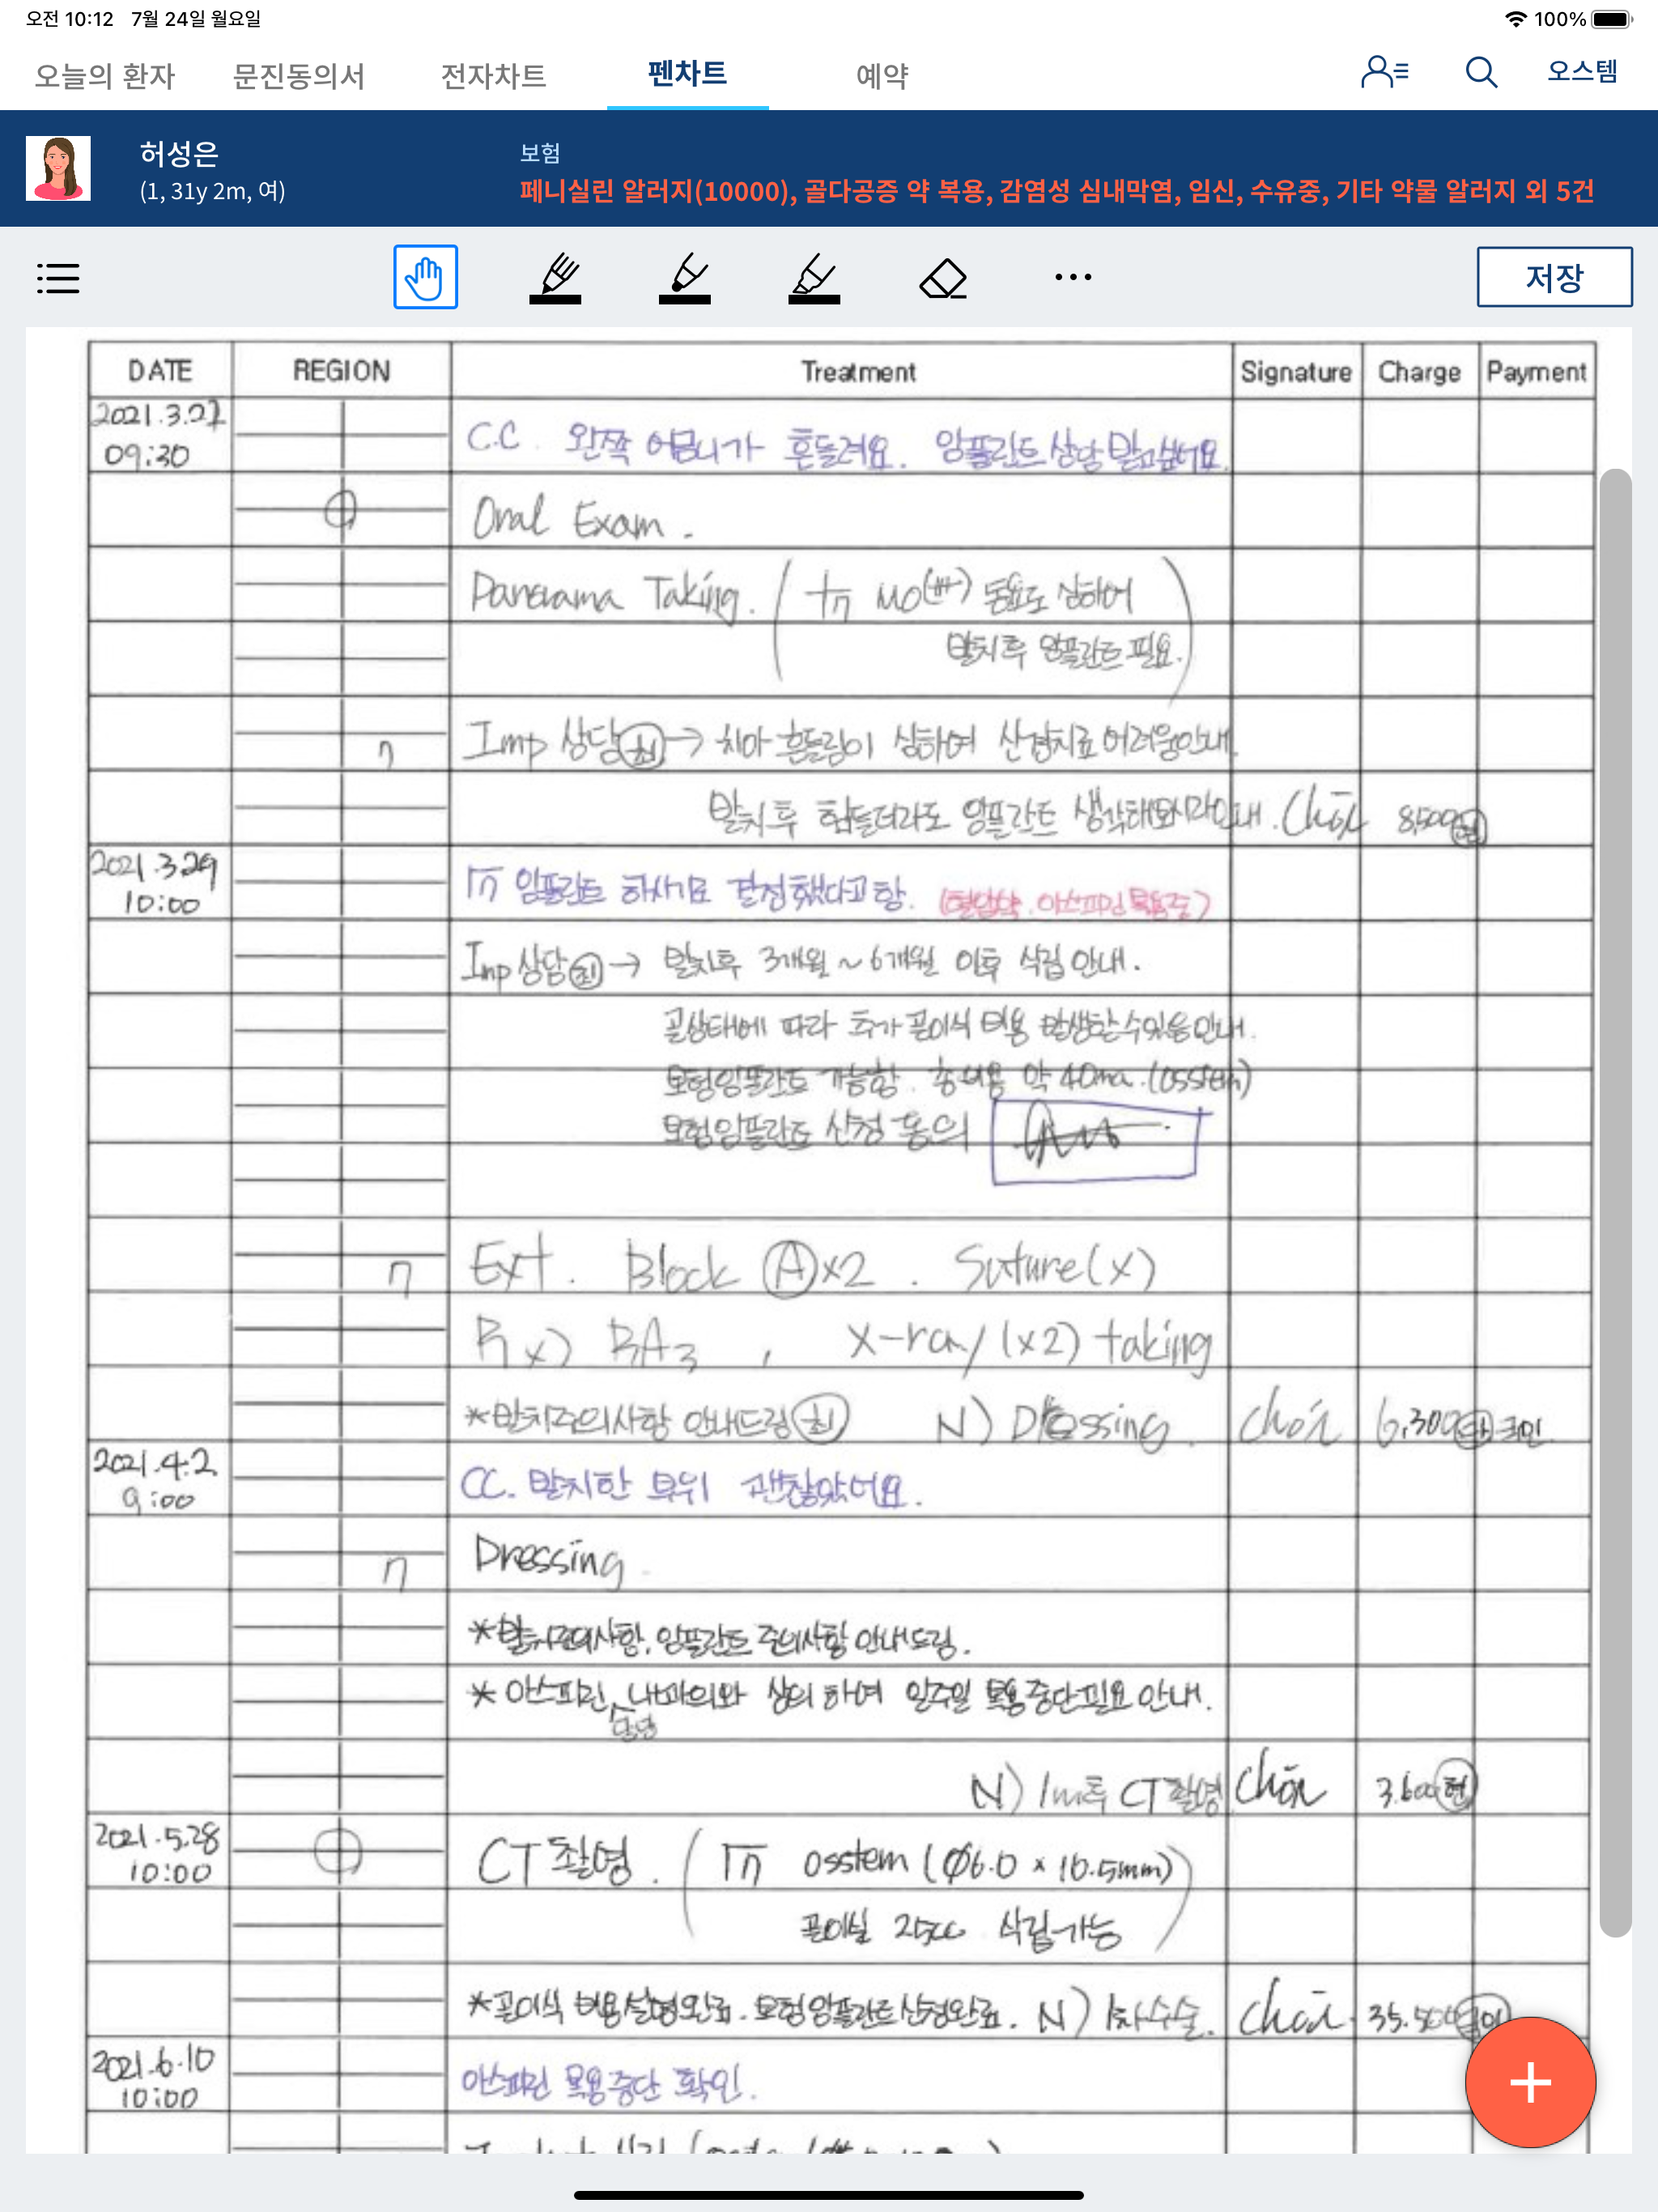 오전 10:12 7월 24일 월요일 100%
오늘의 환자 문진동의서 전자차트 펜차트 예약 오스템
허성은
(1, 31y 2m, 여)
보험
페니실린 알러지(10000), 골다공증 약 복용, 감염성 심내막염, 임신, 수유중, 기타 약물 알러지 외 5건
저장
DATE REGION Treatment Signature Charge Payment
2021.3.27
09:30
C.C 왼쪽 어금니가 흔들려요. 임플란트 상담 받고싶어요.
Oral Exam.
Panorama Taking. ( 7 MO(+++) 동요도 심하여
발치 후 임플란트 필요.)
7 Imp 상담 최 → 치아 흔들림이 심하여 신경치료 어려움안내.
발치 후 힘들더라도 임플란트 생각해보시라안내. 8,500
2021.3.29
10:00
7 임플란트 하시기로 결정했다고 함. (혈압약. 아스피린 복용중)
Imp 상담 최 → 발치후 3개월 ~ 6개월 이후 식립 안내.
골상태에 따라 추가 골이식 비용 발생할수있음안내.
보험임플란트 가능함. 총비용 약 40만. (osstem)
보험임플란트 산정 동의
7 Ext. Block Ⓐx2. Suture(x)
Rx) BA3, X-ray (x2) taking
*발치주의사항 안내드림 최 N) Dressing. 6,300
2021.4.2
9:00
CC. 발치한 부위 괜찮았어요.
7 Dressing.
*발치주의사항, 임플란트 주의사항 안내드림.
* 아스피린, 내과의와 상의하여 일주일 복용중단필요 안내.
담당
N) 1m후 CT촬영 3.600 현
2021.5.28
10:00
CT 촬영. ( 7 osstem (Ø6.0 x 10.5mm)
골이식 25cc 식립가능 )
*골이식 비용설명완료. 보험임플란트산정완료. N) 1차수술.
2021.6.10
10:00
아스피린 복용중단 확인.